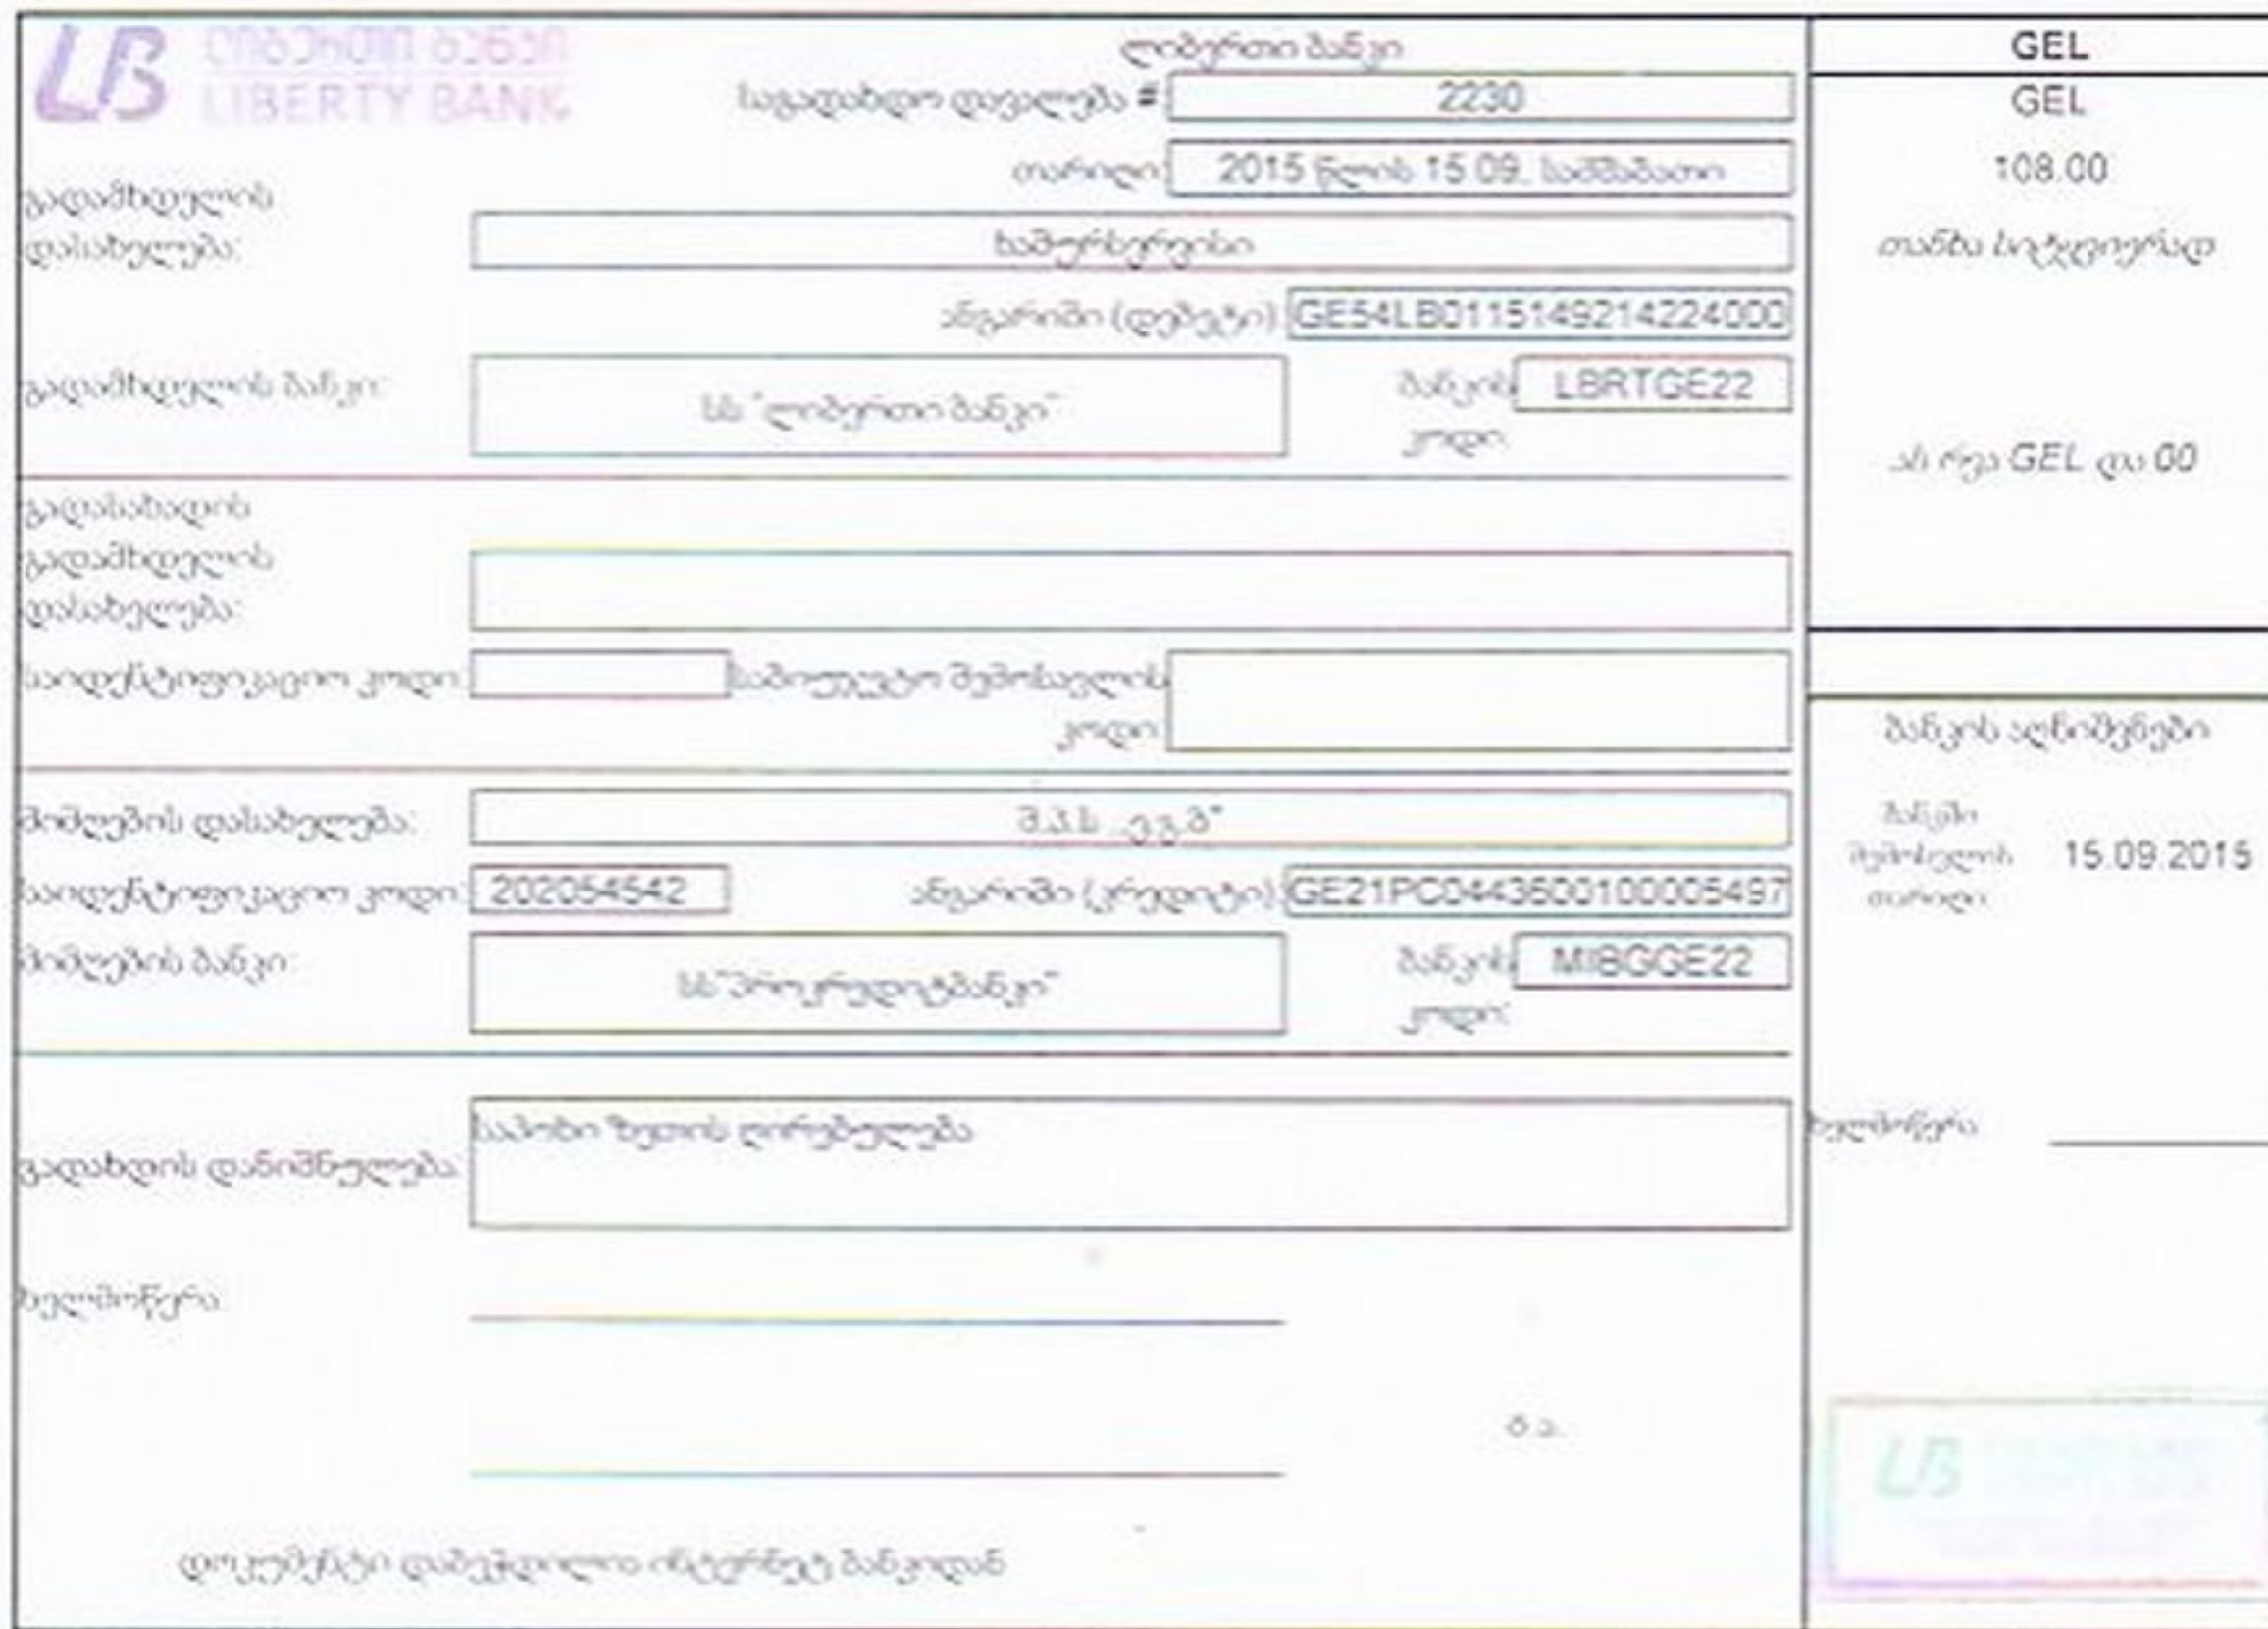 LB ლიბერთი ბანკი
LIBERTY BANK
ლიბერთი ბანკი
საგადახდო დავალება # 2230
თარიღი: 2015 წლის 15.09., სამშაბათი
გადამხდელის
დასახელება: ხამურსერვისი
ანგარიში (დებეტი): GE54LB0115149214224000
გადამხდელის ბანკი: სს "ლიბერთი ბანკი"
ბანკის კოდი: LBRTGE22
გადასახადის
გადამხდელის
დასახელება:
საიდენტიფიკაციო კოდი:
საბიუჯეტო შემოსავლის
კოდი:
მიმღების დასახელება: შ.პ.ს „ე.გ.მ"
საიდენტიფიკაციო კოდი: 202054542
ანგარიში (კრედიტი): GE21PC0443600100005497
მიმღების ბანკი: სს"პროკრედიტბანკი"
ბანკის კოდი: MIBGGE22
გადახდის დანიშნულება: საპოხი ზეთის ღირებულება
ხელმოწერა:
ბ.ა.
დოკუმენტი დაბეჭდილია ინტერნეტ ბანკიდან
GEL
GEL
108.00
თანხა სიტყვიერად
ას რვა GEL და 00
ბანკის აღნიშვნები
ბანკში
შემოსვლის
თარიღი
15.09.2015
ხელმოწერა
LB